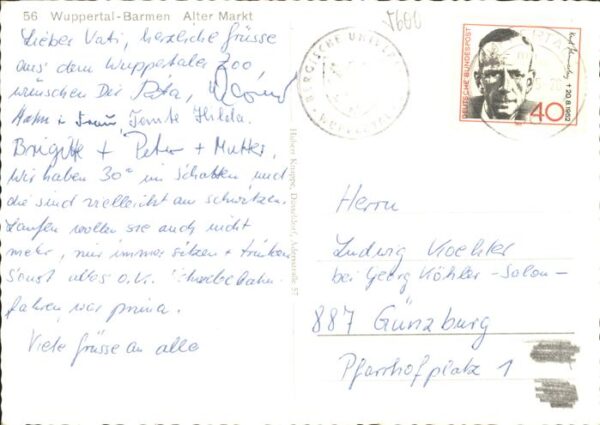 56 Wuppertal-Barmen Alter Markt
Lieber Vati, herzliche Grüsse
aus dem Wuppertaler Zoo,
wünschen Dir
Hahn + Frau, Tante Hilda.
Brigitte + Peter + Mutter.
Wir haben 30° im Schatten und
die sind vielleicht am schwitzen.
Laufen wollen sie auch nicht
mehr, nur immer sitzen + trinken
Sonst alles o.K. Schwebebahn
fahren war prima.
Viele Grüsse an alle
5600
BERGLICHE
WUPPERTAL
DEUTSCHE BUNDESPOST
† 20.8.1952
40
Herrn
Ludwig Koehler
bei Georg Köhler -Salon-
887 Günzburg
Pfarrhofplatz 1